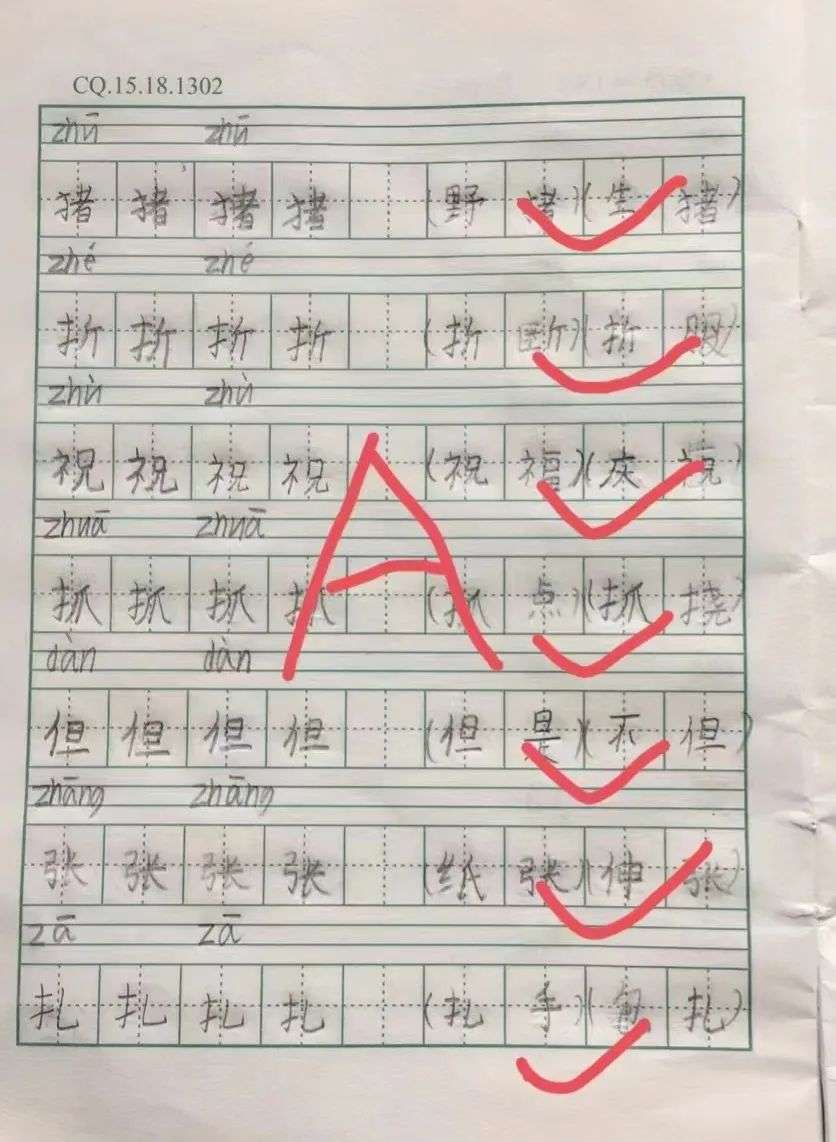 CQ.15.18.1302
zhū zhū
猪 猪 猪 猪 (野 猪)(生 猪)
zhé zhé
折 折 折 折 (折 断)(折 服)
zhù zhù
祝 祝 祝 祝 (祝 福)(庆 祝)
zhuā zhuā
抓 抓 抓 抓 (抓 点)(抓 挠)
dàn dàn
但 但 但 但 (但 是)(不 但)
zhāng zhāng
张 张 张 张 (纸 张)(伸 张)
zā zā
扎 扎 扎 扎 (扎 手)( 扎)
A